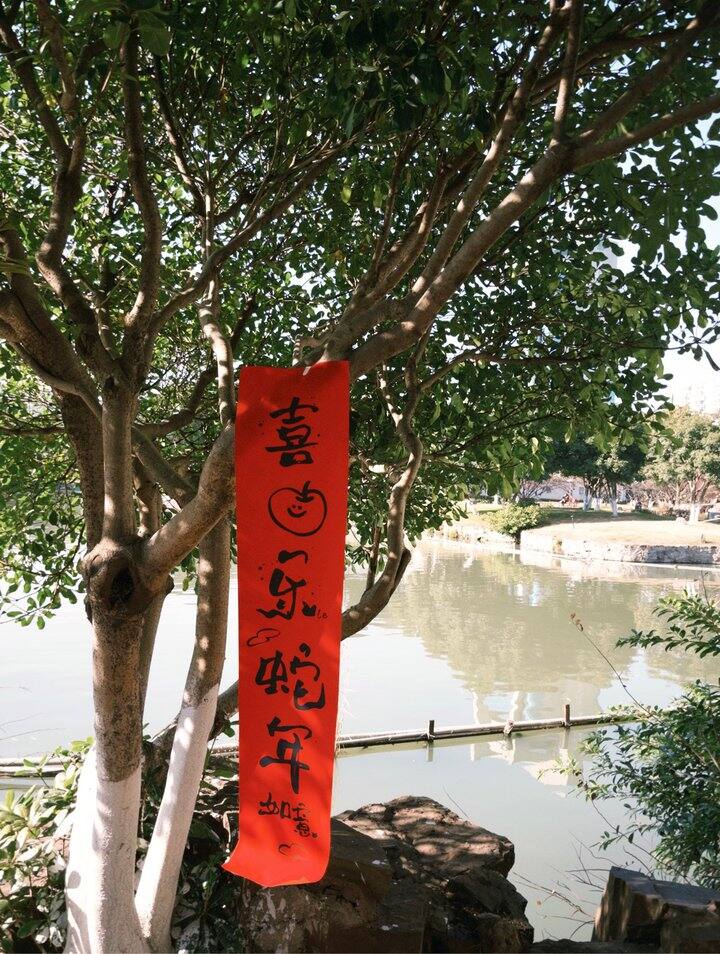 喜乐蛇年如意